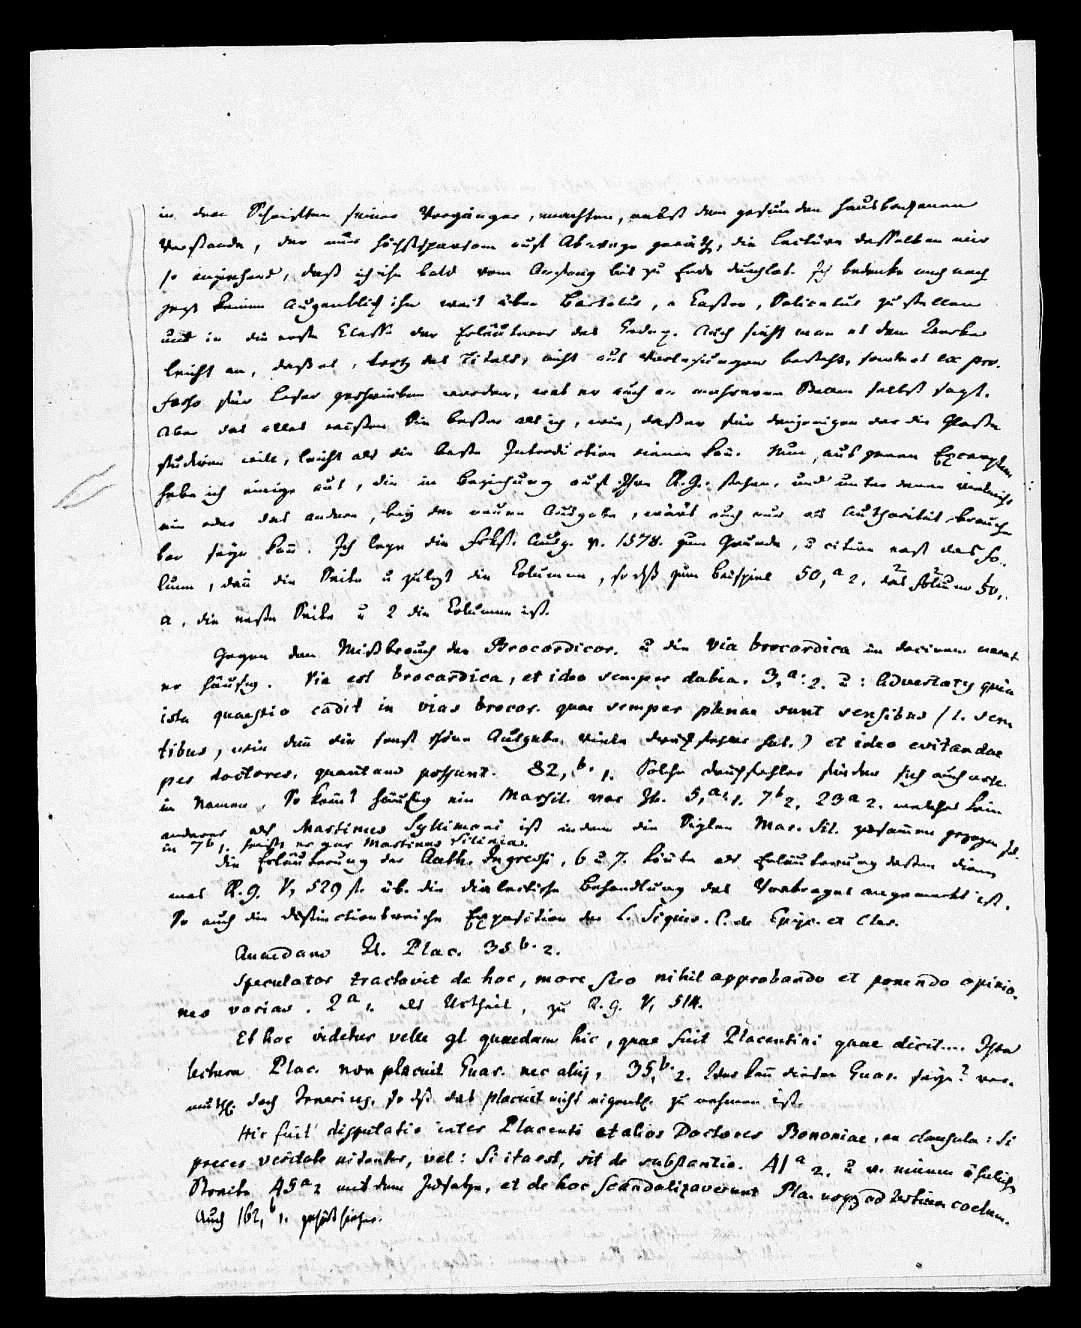 in den Schriften seiner Vorgänger, machten, nebst dem gesunden hausbackenen
Verstande, der nur höchstsparsam auf Abwege geräth, die Lectüre desselben mir
so anziehend, daß ich ihn bald vom Anfang bis zu Ende durchlas. Ich bedenke mich noch
jetzt keinen Augenblick ihn weit über Bartolus, a Castro, Salicetus zu stellen
und in die erste Classe der Erläuterer des Codex. Auch sieht man es dem Werke
leicht an, daß es, trotz des Titels, nicht aus Vorlesungen besteht, sondern ex pro-
fesso für Leser geschrieben worden, was er auch an mehreren Stellen selbst sagt.
Aber das alles wissen Sie besser als ich, wie, daß er für denjenigen der die Glosse
studieren will, leicht als die beste Introduction dienen kañ. Nun, aus jenen Excerpten
hebe ich einige aus, die in Beziehung auf Ihre R.G. stehen, und unter denen vielleicht
ein oder das andere, bei der neuen Ausgabe, wär's auch nur als Authorität brauch-
bar seyn kañ. Ich lege die Frkft. Ausg. v. 1578. zum Grunde, u citiere erst das Fo-
lium, dañ die Seite u zuletzt die Columne, so dß zum Beispiel 50,a 2. das Folium 50,
a, die erste Seite u 2 die Columne ist.
Gegen den Mißbrauch der Brocardicor. u die via brocardica in docieren warnt
er häufig. Via est brocardica, et ideo semper dubia. 3,a. 2. u: Advertatis quia
ista quaestio cadit in vias brocar. quae semper plenae sunt sensibus (l. sen
tibus, wie deñ die sonst schöne Ausgabe viele Druckfehler hat.) et ideo evitandae
per doctores, quantum possunt. 82,b. 1. Solche Druckfehler finden sich auch
in Namen. So kom̃t häufig ein Marsil. vor Zb. 5,a. 1. 7b 2. 23a 2. welches kein
anderer als Martinus Syllimani ist indem die Siglen Mar. Sil. zusam̃en gezogen sd.
in 7b 1. heißt er gar Martinus Silinias.
Die Erläuterung der Auth. Ingressi, 6 u 7. köñte als Erläuterung dessen dienen
was R.G. V, 529 ff. üb. die dialectische Behandlung des Vortrages angemerkt ist.
So auch die distinctionsreiche Exposition der L. Si quis. C. de Episc. et Cler.
Quaedam Gl. Plac. 35b. 2.
Speculator tractavit de hoc, more suo nihil approbando et ponendo opinio-
nes varias. 2a 1. als Urtheil, zu R.G. V, 514.
Et hoc videtur velle gl quaedam hic, quae fuit Placentini quae dicit.... Ista
lectura Plac. non placuit Guar. nec aliis, 35,b. 2.
muthl. doch Irnerius, so dß das placuit nicht eigentl. zu nehmen ist.
Hic fuit disputatio inter Placenti et alios Doctores Bononiae, en clausula: Si
preces veritate nitantur, vel: Si ita est, sit de substantia. 41a 2. u v. einem ähnlichen
Streite 45a 2 mit dem Zusatze, et de hoc scandalizaverunt Pla. usque ad tertium coelum.
Auch 162,b 1. gehört hieher.